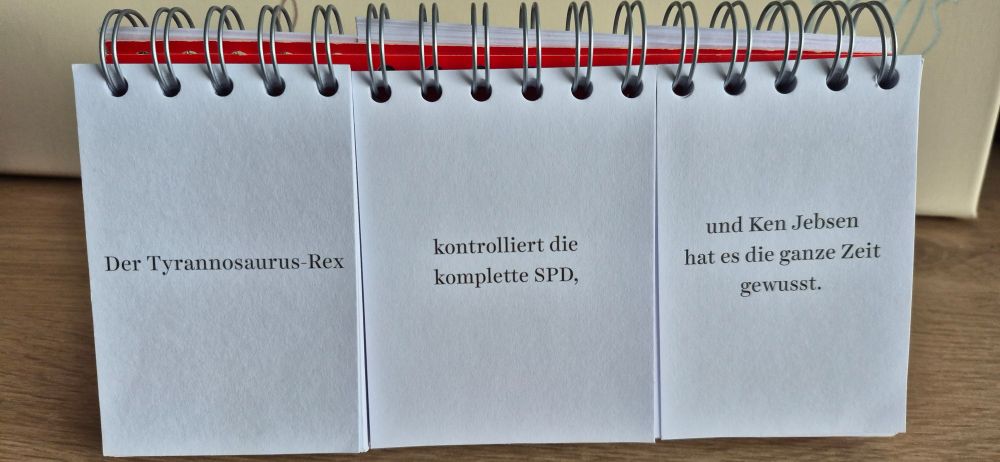 Der Tyrannosaurus-Rex
kontrolliert die
komplette SPD,
und Ken Jebsen
hat es die ganze Zeit
gewusst.